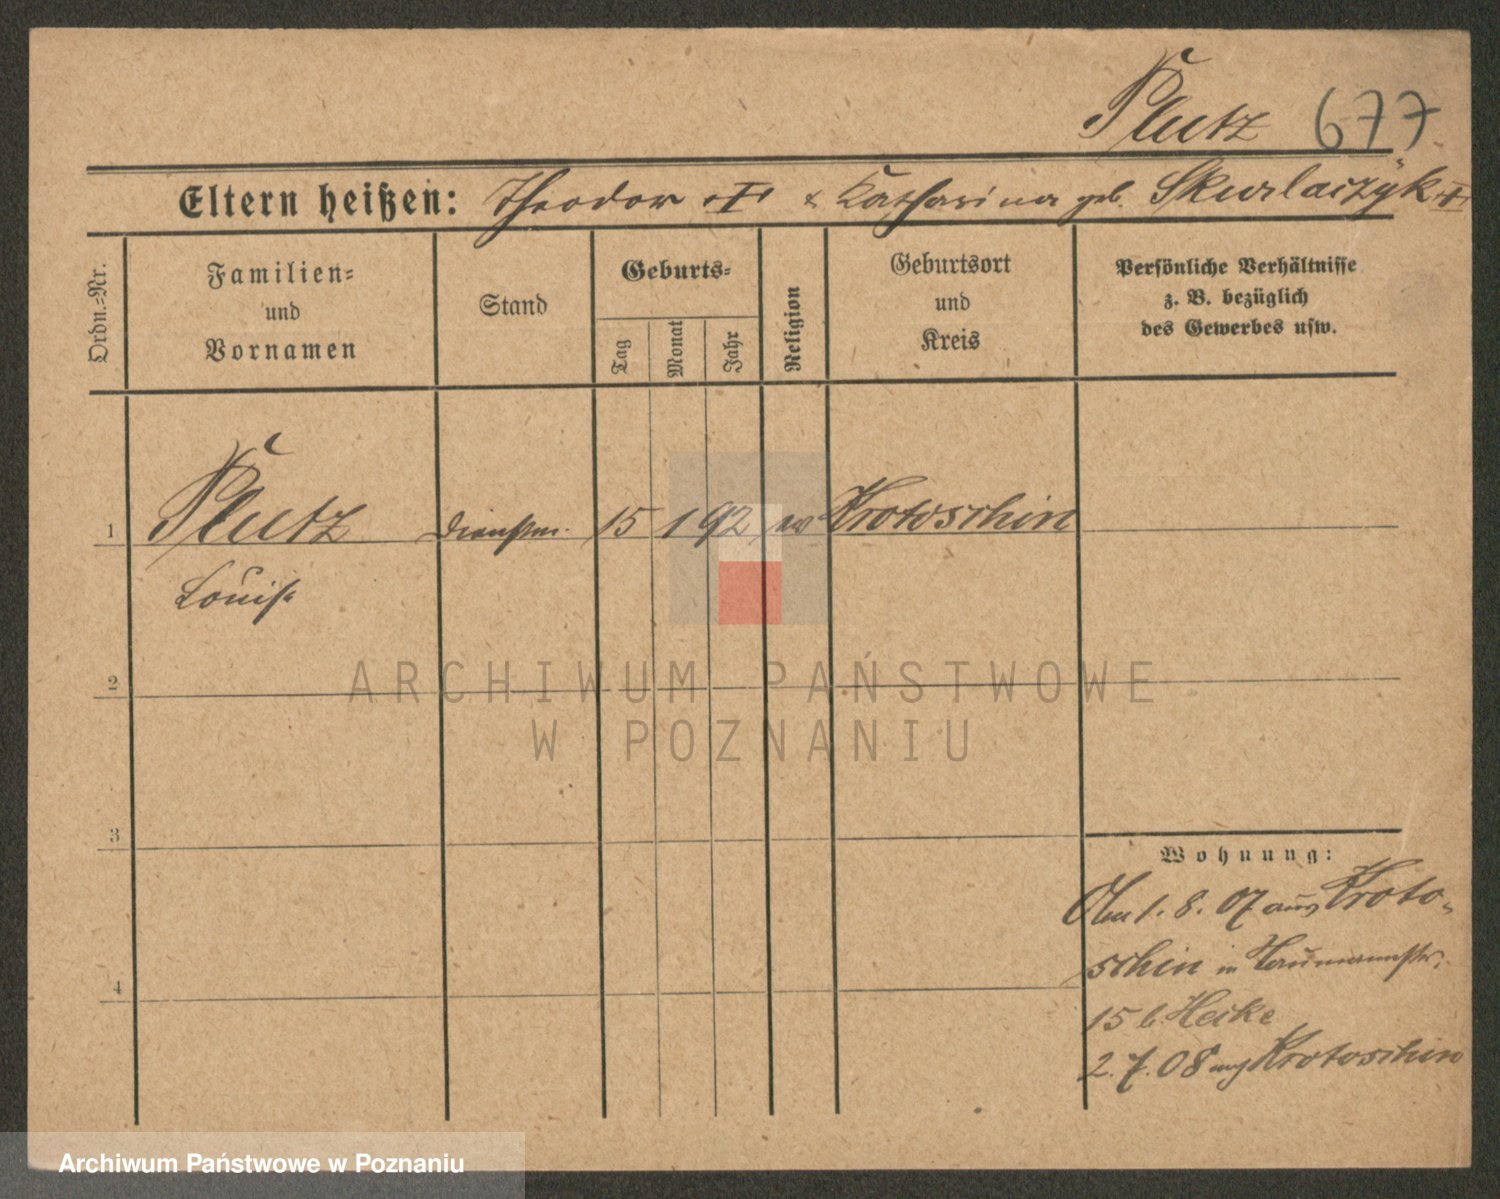 Plutz 677
Eltern heißen: Theodor & Katharina geb. Skurlaczyk
Ordn.-Nr.
Familien-
und
Vornamen
Stand
Geburts-
Tag
Monat
Jahr
Religion
Geburtsort
und
Kreis
Persönliche Verhältnisse
z. B. bezüglich
des Gewerbes usw.
1 Plutz Dienstm. 15 1 92 ev Krotoschin
Louise
2
ARCHIWUM PAŃSTWOWE
W POZNANIU
3
Wohnung:
Am 1. 8. 07 aus Kroto-
schin in Naumannstr.
15 b. Heike
2. 7. 08 Krotoschin
4
Archiwum Państwowe w Poznaniu